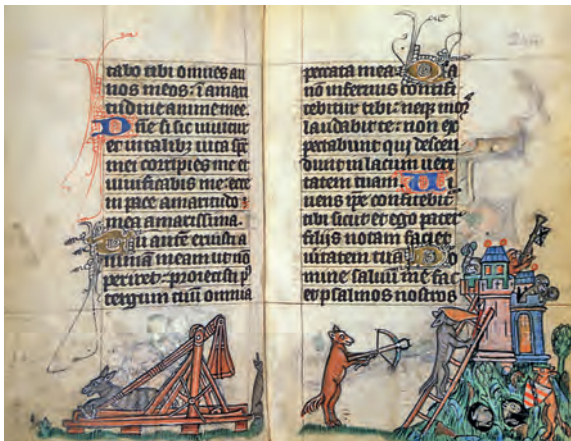 tabo tibi omnes an
nos meos: ī amari
tudine anime mee.
Dn̄e si sic uiuitur
et in talibꝫ uita sp̄c
mei corripies me et
uiuificabis me: ecce
in pace amaritudo
mea amarissima.
Tu autē eruisti a
nimā meam ut nō
periret: proiecisti p̄
tergum tuū omnia
peccata mea. Q̄a
nō infernus confi
tebitur tibi: neqꝫ mor̄
laudabit te: non ex
pectabunt qui descen
dunt in lacum ueri
tatem tuam. Ui
uens ip̄e confitebit̄
tibi sicut et ego pater
filijs notam faciet
ūitatem tuā. Do
mine saluū me fac
et psalmos nostros